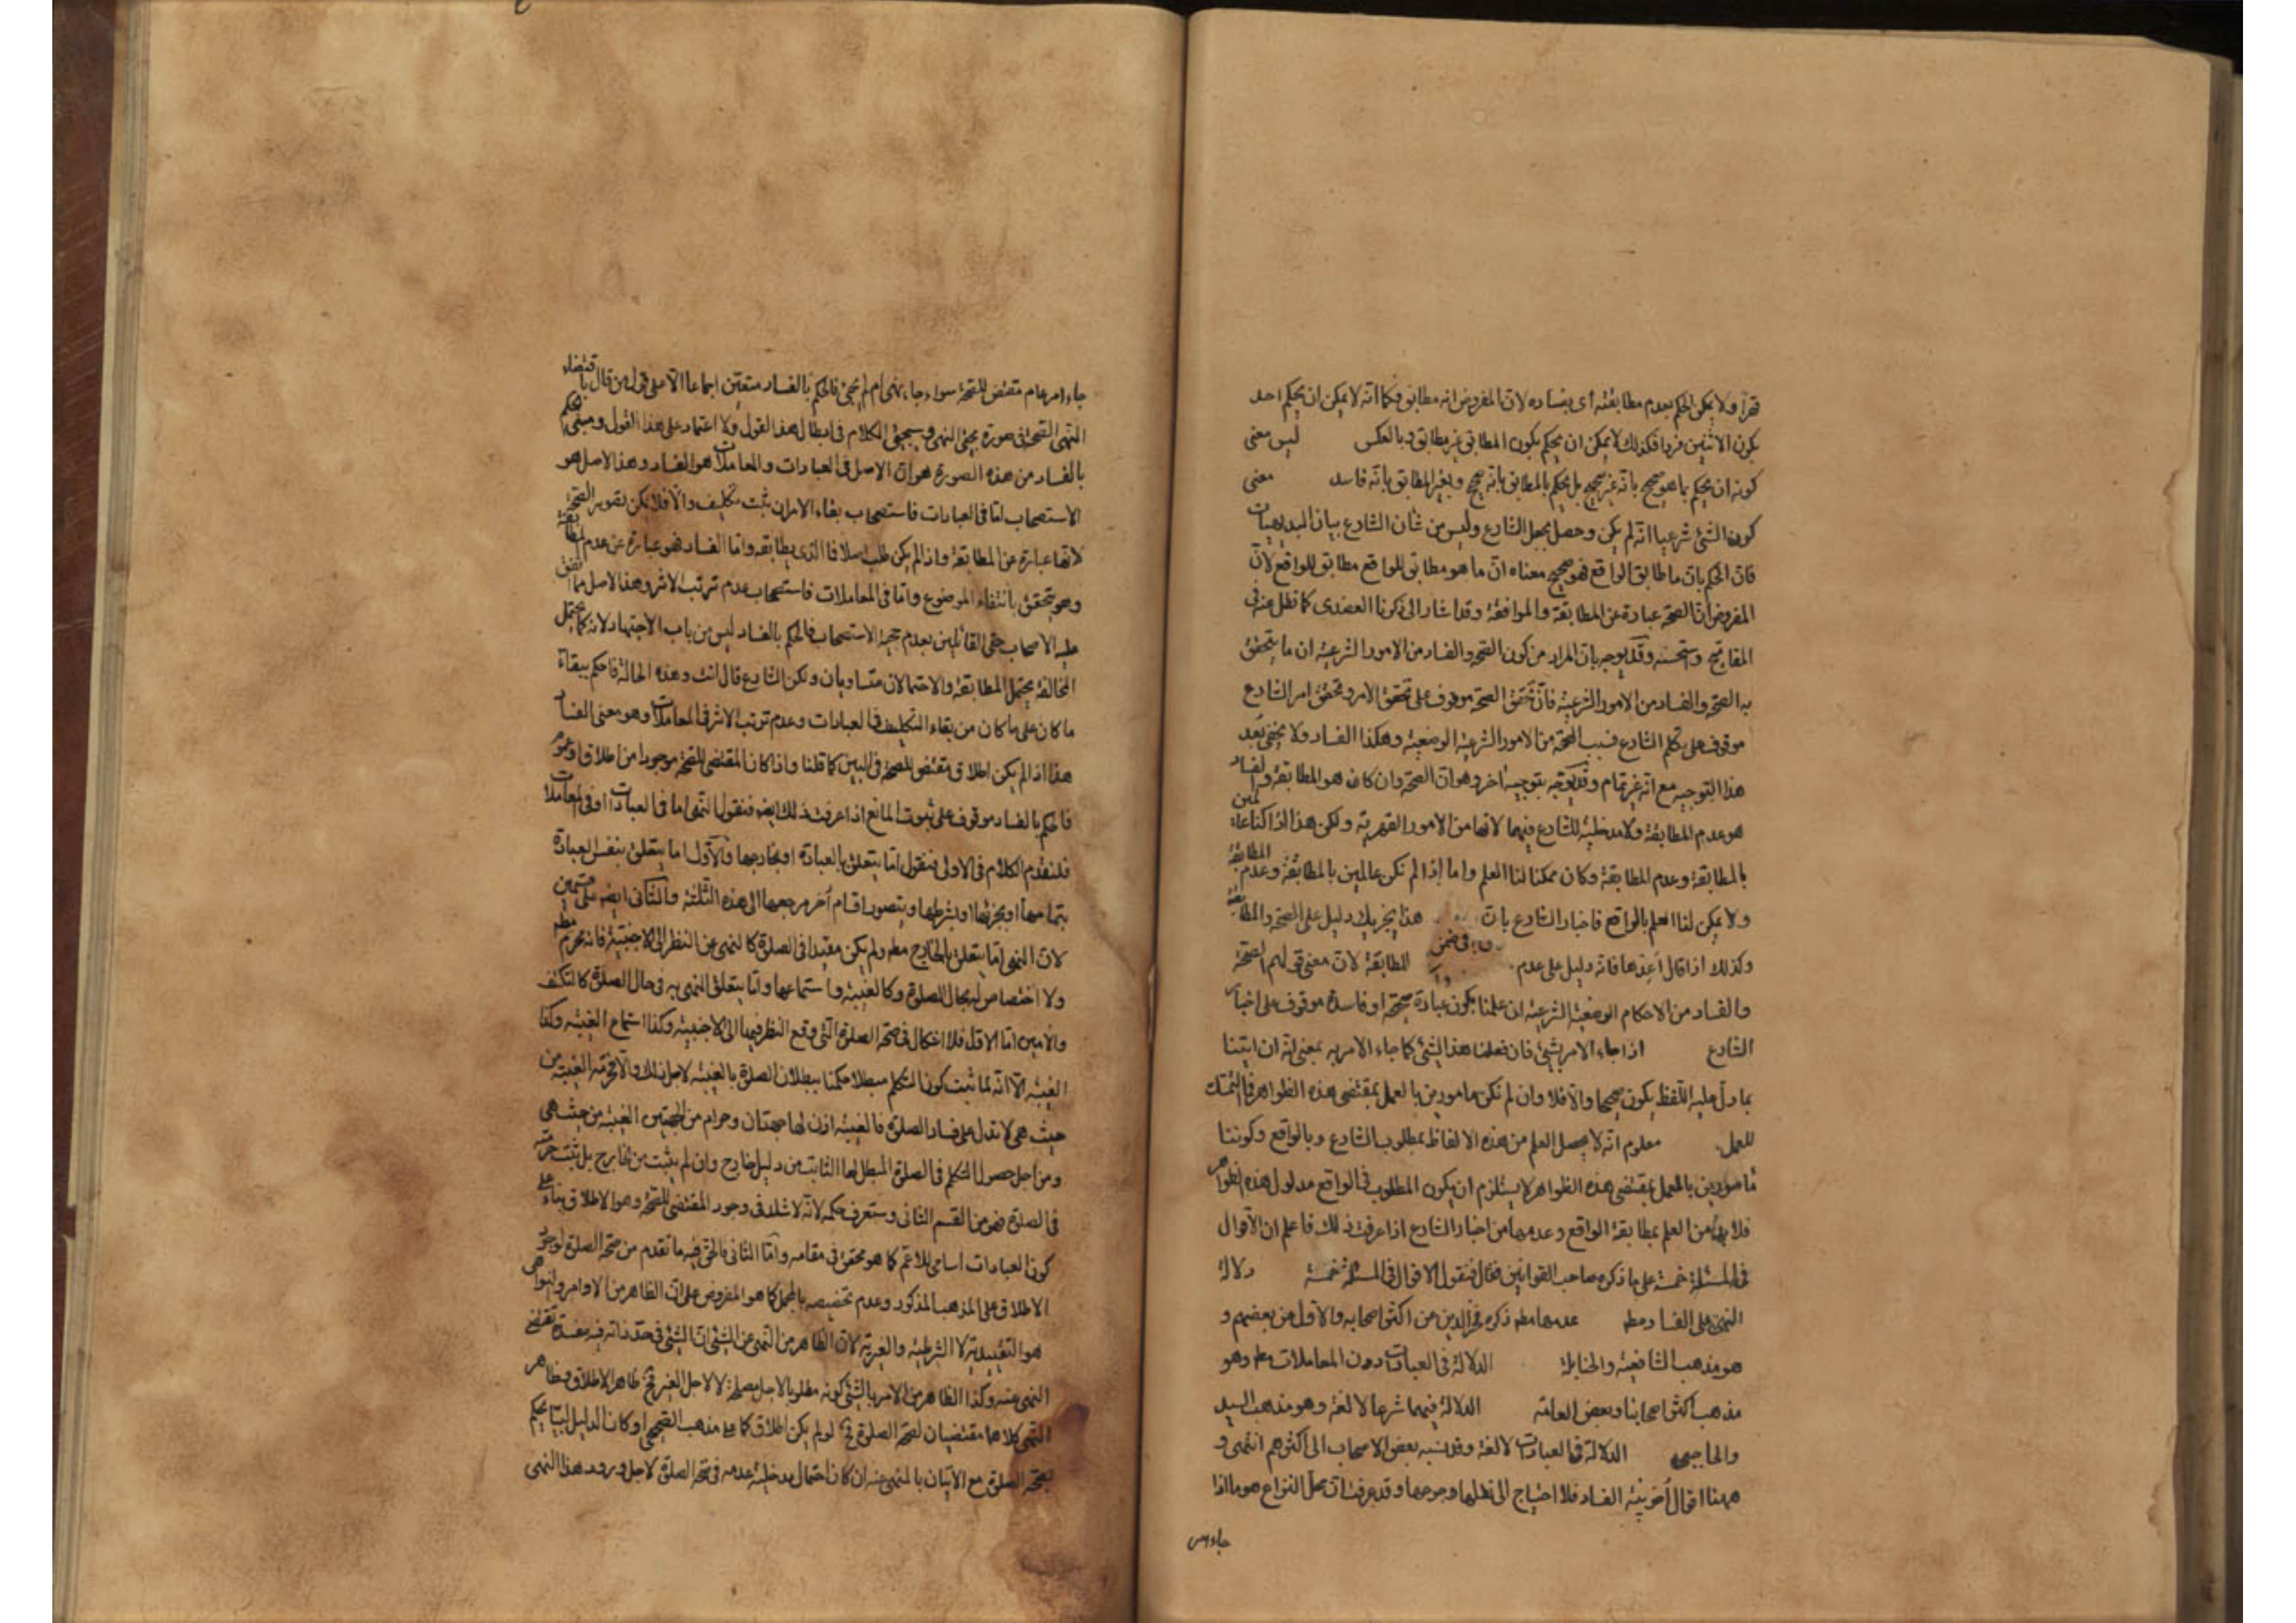 قهرا ولا يمكن الحكم بعدم مطابقته اى بفساده لان المفروض انه مطابق فكما انه لا يمكن ان يحكم احد
بكون الاثنين فردا فكذلك لا يمكن ان يحكم بكون المطابق غير مطابق وبالعكس ليس معنى
كونه ان يحكم بما هو صحيح بانه غير صحيح بل يحكم بالمطابق بانه صحيح وبغير المطابق بانه فاسد معنى
كون الشئ شرعيا انه لم يكن وحصل بجعل الشارع وليس من شان الشارع بيان البديهيات
فان الحكم بان ما طابق الواقع فهو صحيح معناه ان ما هو مطابق للواقع مطابق للواقع لان
المفروض ان الصحة عبارة عن المطابقة والموافقة وقد اشار الى ذكرنا العضدى كما نقل عنه فى
المفاتيح واستحسنه وقد يوجه بان المراد من كون الصحة والفساد من الامور الشرعية ان ما يتحقق
به الصحة والفساد من الامور الشرعية فان تحقق الصحة موقوف على تحقق الامر وتحقق امر الشارع
موقوف على تكلم الشارع فسبب الصحة من الامور الشرعية الوضعية وهكذا الفساد ولا يخفى بُعد
هذا التوجيه مع انه غير تمام وقد يوجه بتوجيه اخر وهو ان الصحة وان كان هو المطابقة والفساد
هو عدم المطابقة ولا مدخلية للشارع فيهما لانهما من الامور القهرية ولكن هذا اذا كنا عالمين
بالمطابقة وعدم المطابقة وكان ممكنا لنا العلم واما اذا لم نكن عالمين بالمطابقة وعدم المطابقة
ولا يمكن لنا العلم بالواقع فاخبار الشارع بان هذا يجزيك دليل على الصحة والمطابقة
وكذلك اذا قال أعدها فانه دليل على عدم المطابقة لان معنى قولهم الصحة
والفساد من الاحكام الوضعية الشرعية ان علمنا بكون عبادة صحيحة او فاسدة موقوف على اخبار
الشارع اذا جاء الامر بشئ فان فعلنا هذا الشئ كما جاء الامر به بمعنى انه ان اتينا
بما دل عليه اللفظ يكون صحيحا والا فلا وان لم نكن مامورين بالعمل بمقتضى هذه الظواهر فالتمسك
للعمل معلوم انه لا يحصل العلم من هذه الالفاظ بمطلوب الشارع وبالواقع وكوننا
مامورين بالعمل بمقتضى هذه الظواهر لا يستلزم ان يكون المطلوب فى الواقع مدلول هذه الظواهر
فلا بد من العلم بمطابقة الواقع وعدمها من اخبار الشارع اذا عرفت ذلك فاعلم ان الاقوال
فى المسئلة خمسة على ما ذكره صاحب القوانين فقال فنقول الاقوال فى المسئلة خمسة دلالة
النهى على الفساد مطه عدمها مطه ذكره فخر الدين من اكثر اصحابه والاول من بعضهم و
هو مذهب الشافعية والحنابلة الدلالة فى العبادات دون المعاملات مطه وهو
مذهب اكثر اصحابنا وبعض العامة الدلالة فيهما شرعا لا لغة وهو مذهب السيد
والحاجبى الدلالة فى العبادات لا لغة وقد نسبه بعض الاصحاب الى اكثرهم انتهى و
ههنا اقوال اخر بينة الفساد فلا احتياج الى نقلها وجرحها وقد عرفت ان محل النزاع هو ما اذا
جاء امر
جاء امر عام مقتض للصحة سواء جاء نهى ام لم يجئ فالحكم بالفساد متعين اجماعا الا على قول من قال باقتضاء
النهى الصحة فى صورة مجئ النهى وسيجئ الكلام فى ابطال هذا القول ولا اعتماد على هذا القول ومبنى الحكم
بالفساد من هذه الصورة هو ان الاصل فى العبادات والمعاملات هو الفساد وهذا الاصل هو
الاستصحاب امّا فى العبادات فاستصحاب بقاء الامر ان ثبت تكليف والا فلا يمكن تصوير الصحة
لانها عبارة عن المطابقة واذا لم يكن طلب اصلا فما الذى يطابقه واما الفساد فهو عبارة عن عدم المطابقة
وهو يتحقق بانتفاء الموضوع واما فى المعاملات فاستصحاب عدم ترتب الاثر وهذا الاصل مما اتفق
عليه الاصحاب حتى القائلين بعدم حجية الاستصحاب فالحكم بالفساد ليس من باب الاجتهاد لانه كما يحتمل
المخالفة يحتمل المطابقة والاحتمالان متساويان ولكن الشارع قال انت وهذه الحالة فاحكم ببقاء
ما كان على ما كان من بقاء التكليف فى العبادات وعدم ترتب الاثر فى المعاملات وهو معنى الفساد
هذا اذا لم يكن اطلاق مقتض للصحة فى البين كما قلنا واذا كان المقتضى للصحة موجودا من اطلاق او عموم
فالحكم بالفساد موقوف على ثبوت المانع اذا عرفت ذلك ايضه فنقول النهى اما فى العبادات او فى المعاملات
فلنقدم الكلام فى الاولى فنقول اما يتعلق بالعبادة او بخارجها والاول اما يتعلق بنفس العبادة
بتمامها او بجزئها او بشرطها ويتصور اقسام أخر مرجعها الى هذه الثلثة والثانى ايضه على قسمين
لان النهى اما يتعلق بالخارج مطه ولم يكن مقيدا فى الصلوة كالنهى عن النظر الى الاجنبية فانه محرم مطه
ولا اختصاص له بحال الصلوة وكالغيبة واستماعها واما يتعلق النهى به فى حال الصلوة كالتكتف
والامين اما الاول فلا اشكال فى صحة الصلوة التى وقع النظر فيها الى الاجنبية وكذا استماع الغيبة وكذا
الغيبة الا انه لما ثبت كون التكلم مبطلا حكمنا ببطلان الصلوة بالغيبة لاجل ذلك والا فحرمة الغيبة من
حيث هى لا تدل على فساد الصلوة فالغيبة اذن لها جهتان وحرام من الجهتين الغيبة من حيث هى
ومن اجل حصول التكلم فى الصلوة المبطل لها الثابت من دليل خارج وان لم يثبت من خارج بل يثبت حرمته
فى الصلوة فهو من القسم الثانى وستعرف حكمه لانه لا شك فى وجود المقتضى للصحة وهو الاطلاق بناء على
كون العبادات اسامى للاعم كما هو محقق فى مقامه واما الثانى فالحق فيه ما تقدم من صحة الصلوة لوجود
الاطلاق على المذهب المذكور وعدم تخصيصه بالمجمل كما هو المفروض على ان الظاهر من الاوامر والنواهى
هو التقييدية لا الشرطية والغيرية لان الظاهر من النهى عن الشئ ان الشئ فى حد ذاته فيه مفسدة تقتضى
النهى عنه وكذا الظاهر من الامر بالشئ كونه مطلوبا لاجل مصلحة لا لاجل الغير فح ظاهر الاطلاق وظاهر
النهى كلاهما مقتضيان لصحة الصلوة فح لو لم يكن اطلاق كما على مذهب الصحيحى او كان الدليل لبيا يحكم
بصحة الصلوة مع الاتيان بالمنهى عنه ان كان احتمال مدخلية عدمه فى صحة الصلوة لاجل ورود هذا النهى